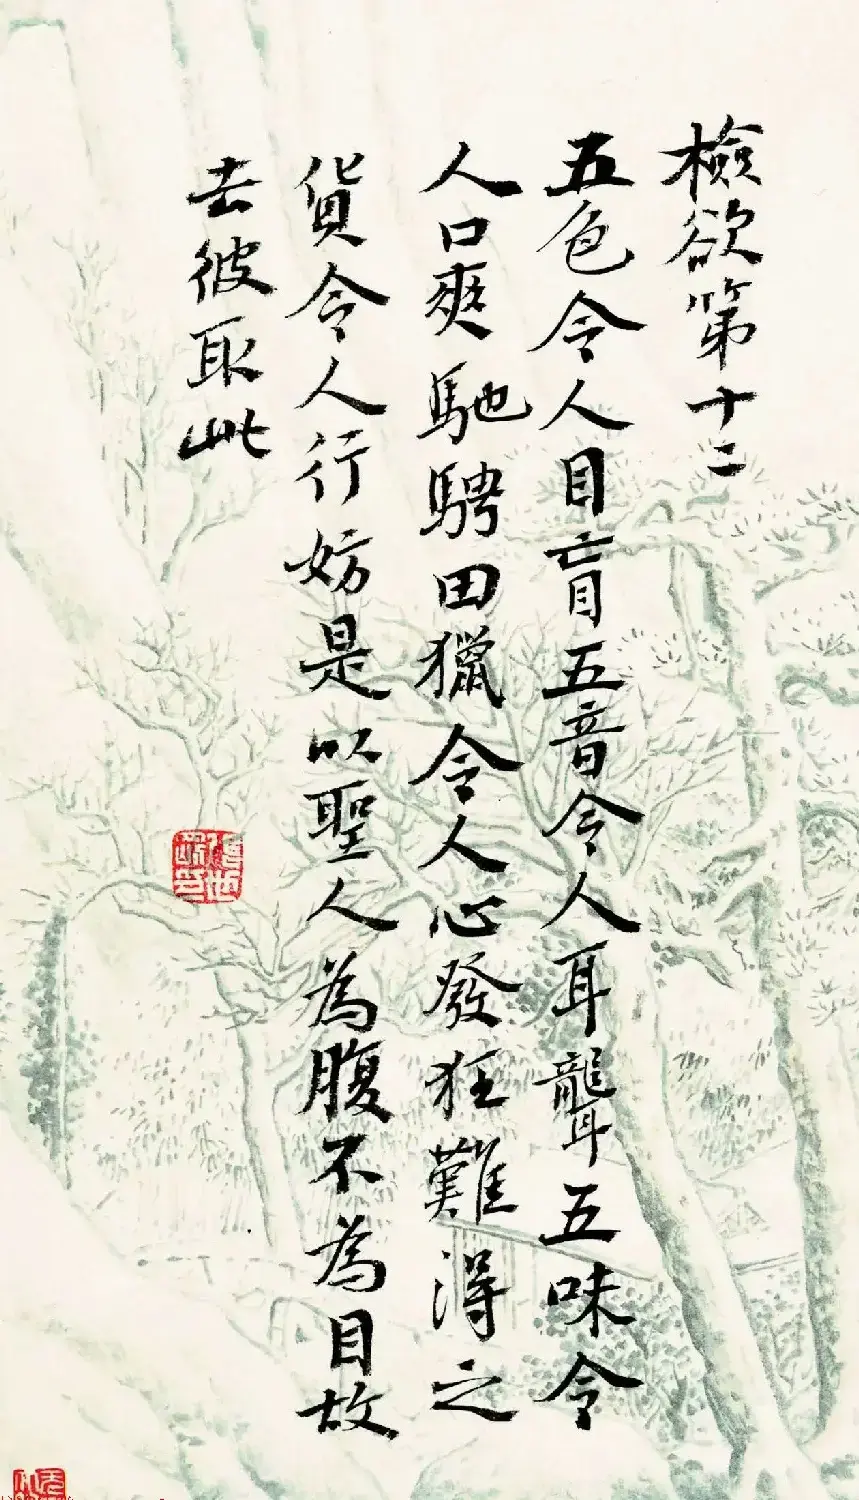 檢欲第十二
五色令人目盲五音令人耳聾五味令
人口爽馳騁田獵令人心發狂難得之
貨令人行妨是以聖人為腹不為目故
去彼取此